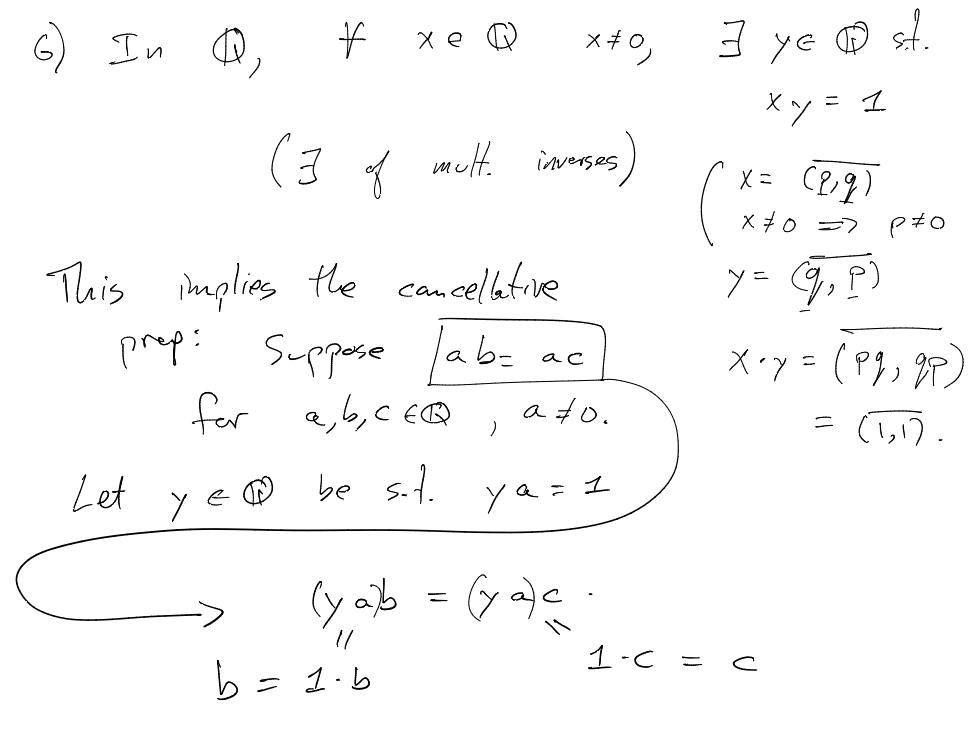 6) In ℚ, ∀ x ∈ ℚ x≠0, ∃ y ∈ ℚ s.t.
x y = 1
(∃ of mult. inverses)
( x = \overline{(p,q)}
x ≠ 0 => p ≠ 0
y = \overline{(q, p)}
x · y = \overline{(pq, qp)}
= \overline{(1,1)}.
This implies the cancellative
prop: Suppose ab = ac
for a,b,c ∈ ℚ, a ≠ 0.
Let y ∈ ℚ be s.t. y a = 1
(y a)b = (y a)c.
" "
b = 1·b 1·c = c